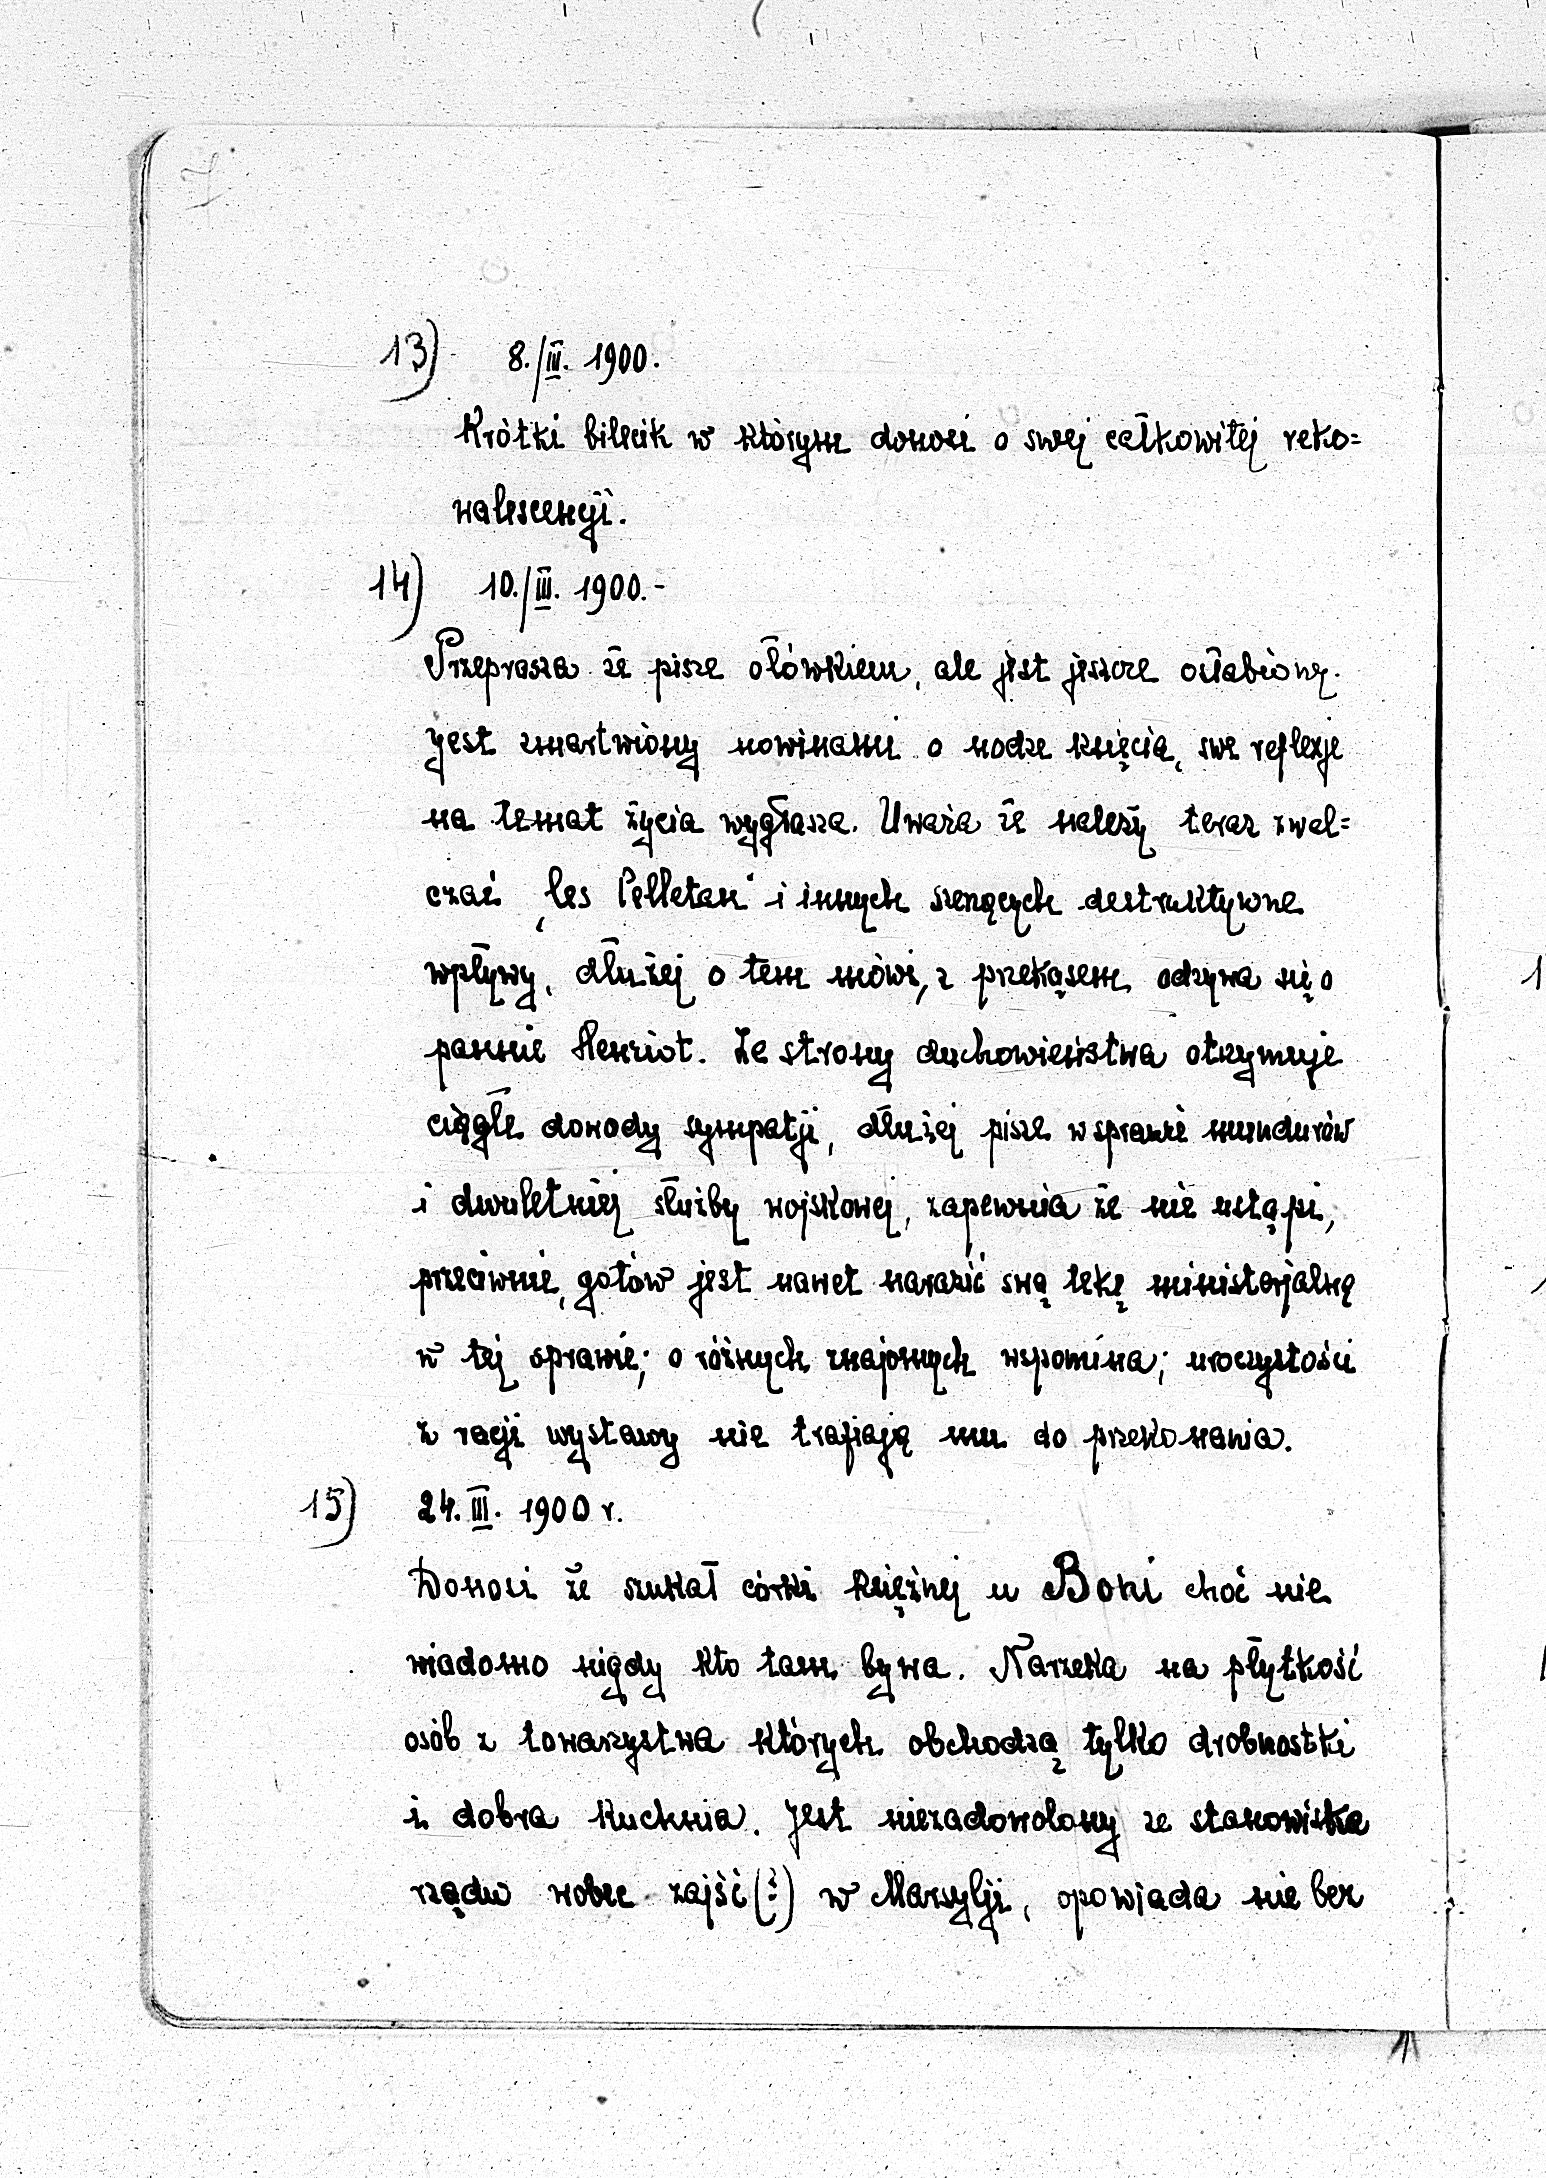 7
13) 8./III. 1900.
Krótki bilecik w którym donosi o swej całkowitej reko=
nalescencyji.
14) 10./III. 1900.-
Przeprasza że pisze ołówkiem, ale jest jeszcze osłabiony.
Jest zmartwiony nowinami o nodze księcia, swe reflexje
na temat życia wygłasza. Uważa że należy teraz zwal=
czać „les Pelletan" i innych szerzących destruktywne
wpływy, dłużej o tem mówi, z przekąsem odzywa się o
pannie Henriot. Ze strony duchowieństwa otrzymuje
ciągle dowody sympatji, dłużej pisze w sprawie mundurów
i dwuletniej służby wojskowej, zapewnia że nie ustąpi,
przeciwnie, gotów jest nawet narazić swą tekę ministerjalną
w tej sprawie; o różnych znajomych wspomina; uroczystości
z racji wystawy nie trafiają mu do przekonania.
15) 24. III. 1900 r.
Donosi że szukał córki księżnej u Boni choć nie
wiadomo nigdy kto tam bywa. Narzeka na płytkość
osób z towarzystwa których obchodzą tylko drobnostki
i dobra kuchnia. Jest niezadowolony ze stanowiska
rządu wobec zajść (?) w Marsylji, opowiada nie bez